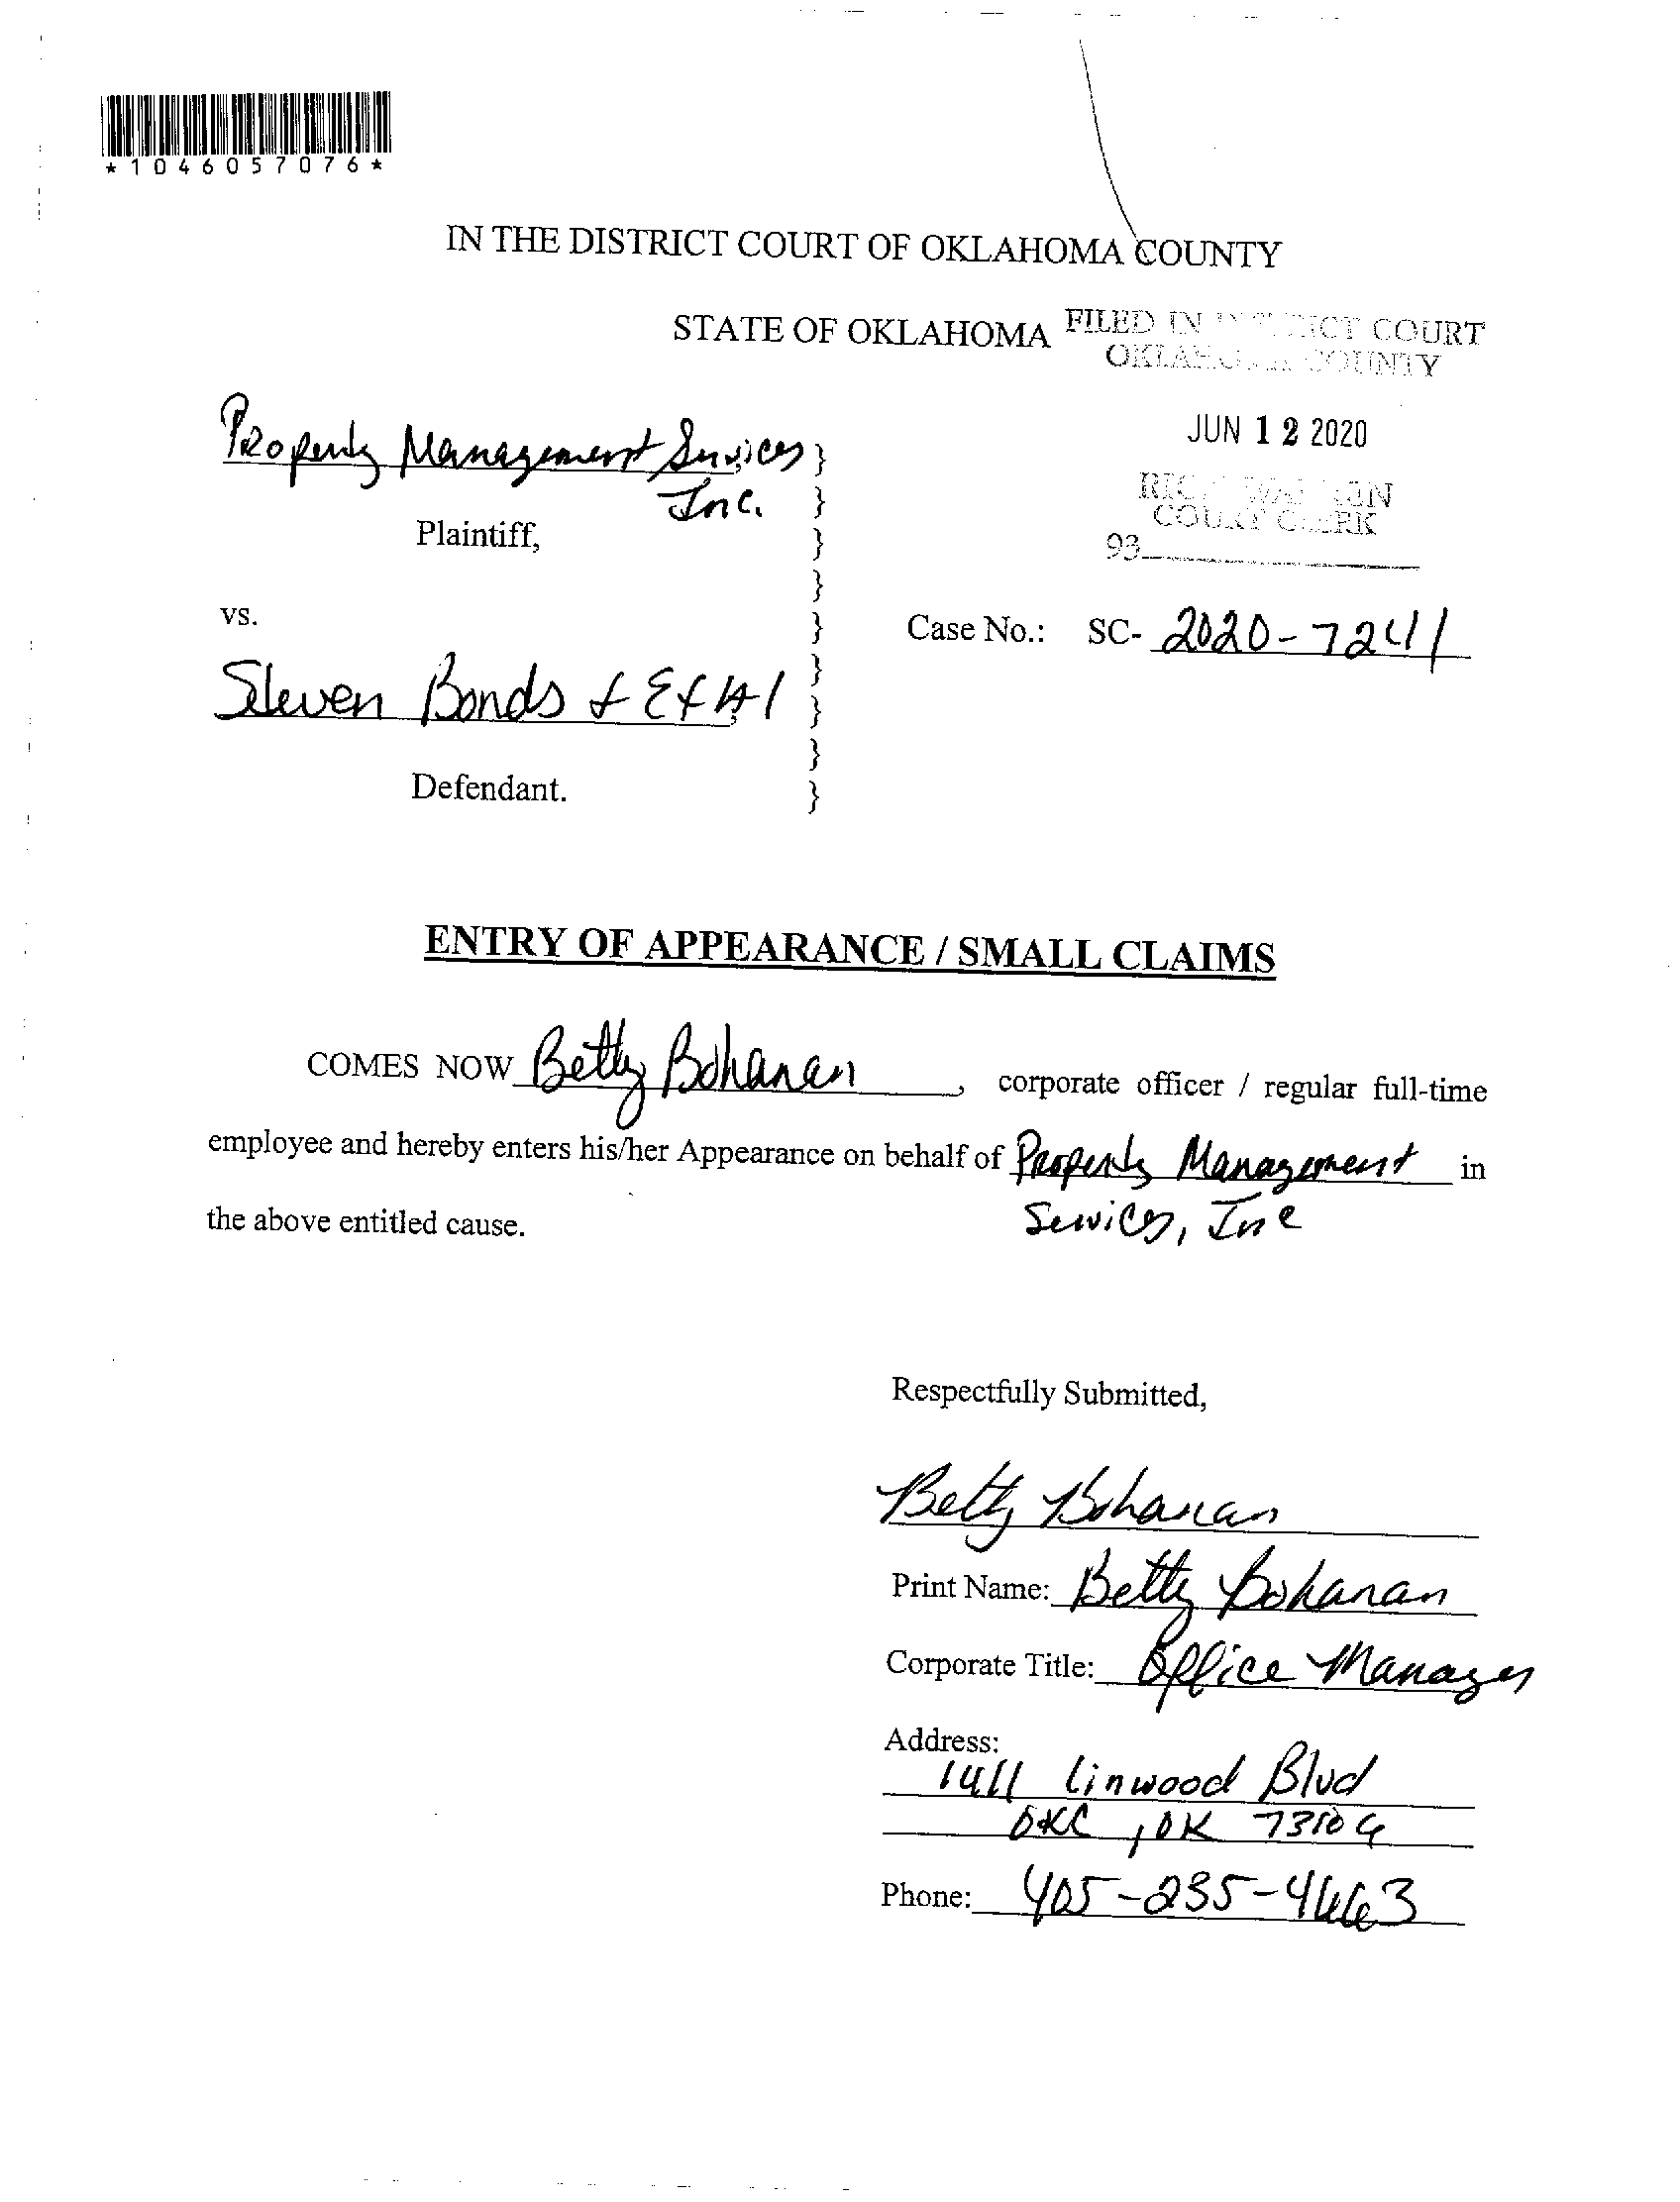 *1046057076*
IN THE DISTRICT COURT OF OKLAHOMA COUNTY
STATE OF OKLAHOMA
FILED IN DISTRICT COURT
OKLAHOMA COUNTY
JUN 12 2020
COURT CLERK
93
Property Management Services }
Inc. }
Plaintiff, }
}
vs. }
Case No.: SC- 2020-7241
}
Steven Bonds & Et Al }
}
Defendant. }
ENTRY OF APPEARANCE / SMALL CLAIMS
COMES NOW Betty Bohanan, corporate officer / regular full-time
employee and hereby enters his/her Appearance on behalf of Property Management in
Services, Inc
the above entitled cause.
Respectfully Submitted,
Betty Bohanan
Print Name: Betty Bohanan
Corporate Title: Office Manager
Address:
1411 Linwood Blvd
OKC, OK 73106
Phone: 405-235-4663